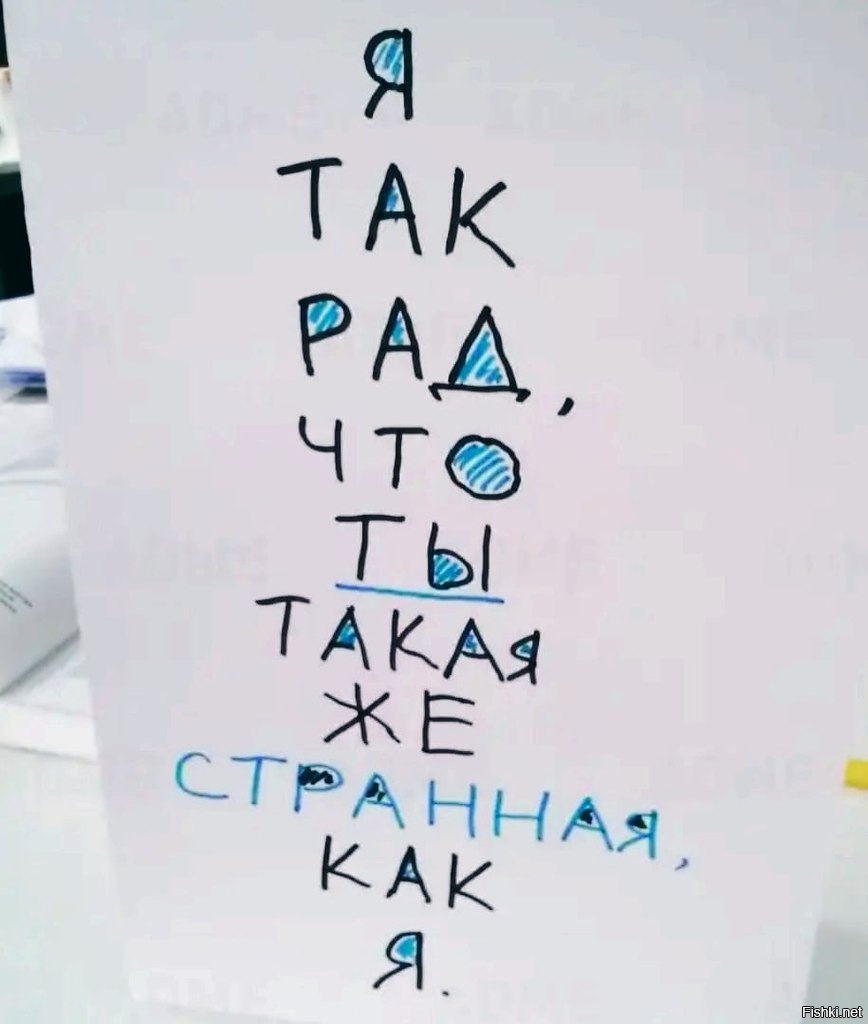 Я
ТАК
РАД,
ЧТО
ТЫ
ТАКАЯ
ЖЕ
СТРАННАЯ,
КАК
Я.
Fishki.net